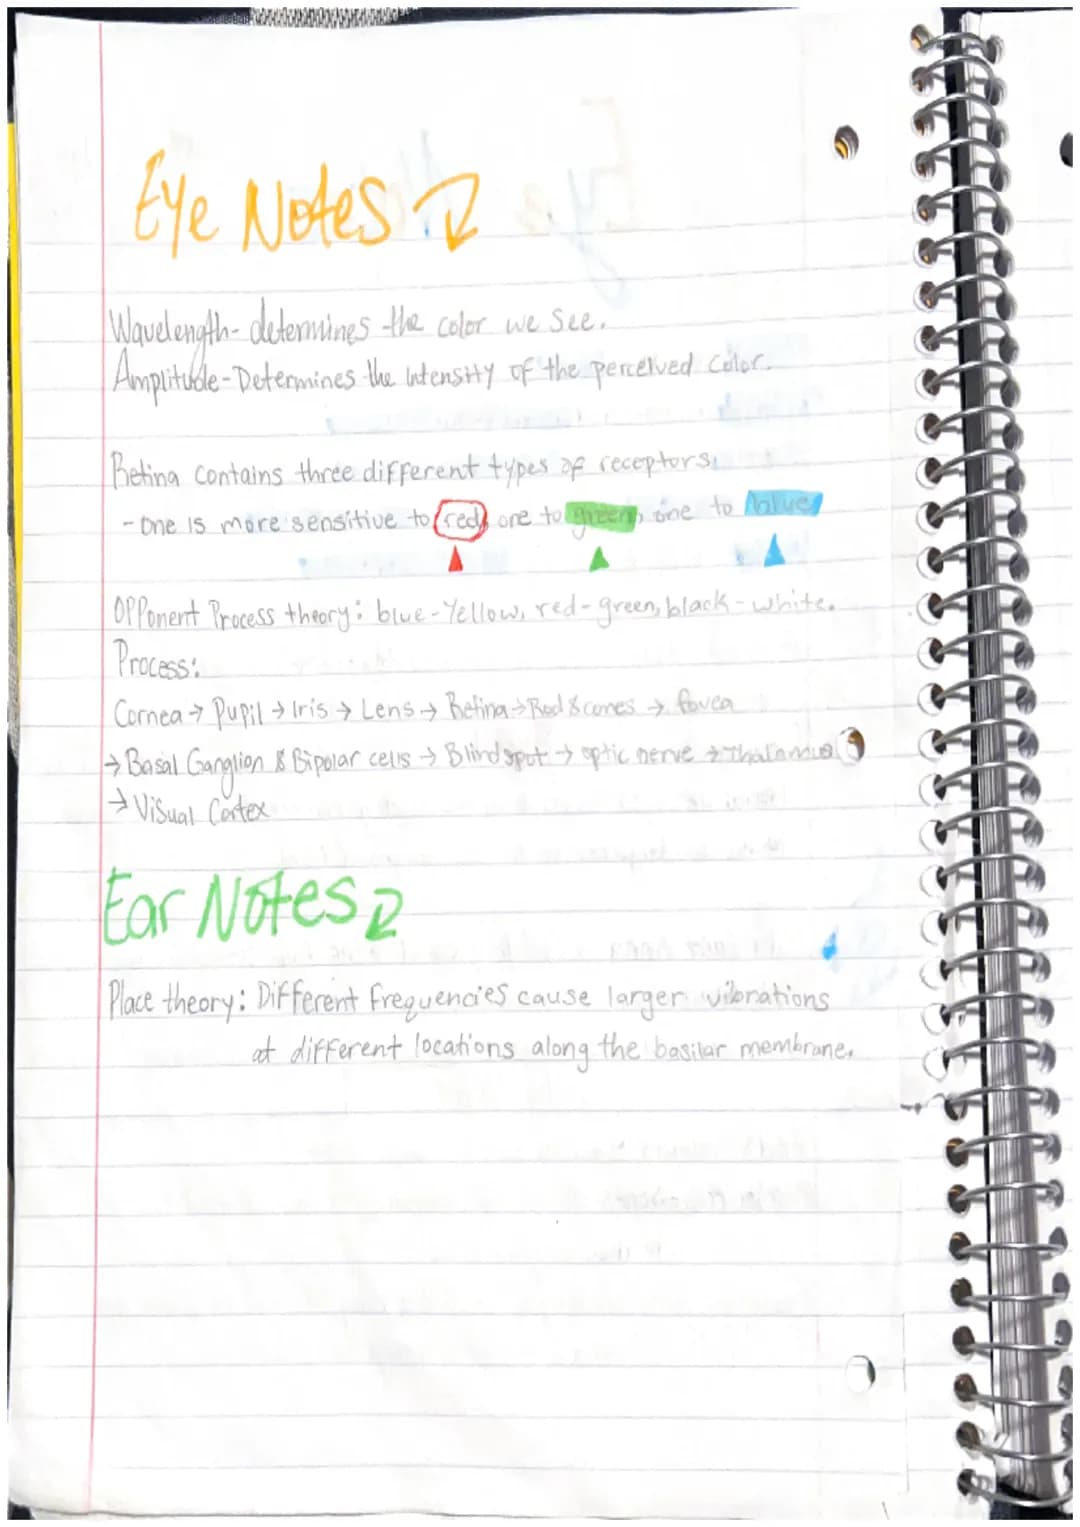 Eye Notes
Wavelength- determines the color we see.
Amplitude-Determines the intensity of the perceived color.
Retina contains three different types of receptors.
-one is more sensitive to red, one to green, one to blue
Opponent Process theory: blue-Yellow, red-green, black-white.
Process:
Cornea → Pupil → Iris → Lens → Retina → Rod & cones → fovea
→ Basal Ganglion & Bipolar cells → Blind spot → optic nerve → Thalamus
→ Visual Cortex
Ear Notes
Place theory: Different frequencies cause larger vibrations
at different locations along the basilar membrane.